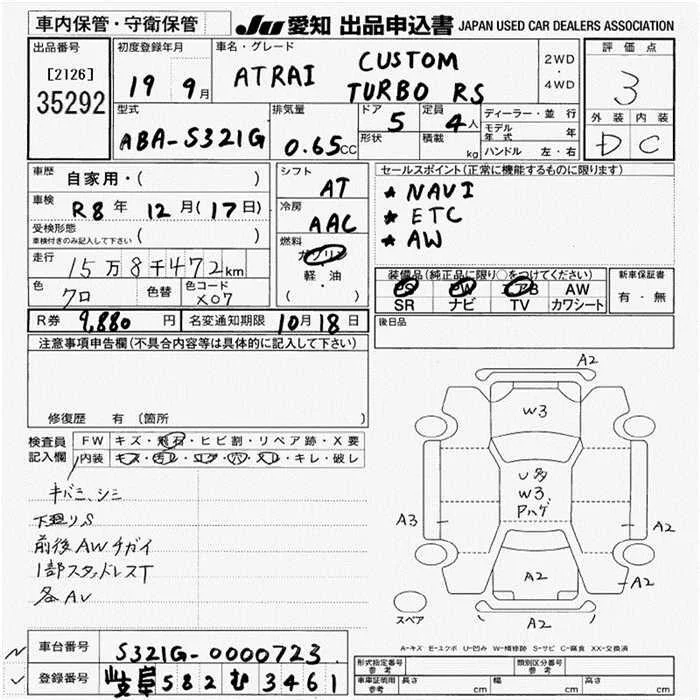 車内保管・守衛保管
JU 愛知 出品申込書 JAPAN USED CAR DEALERS ASSOCIATION
出品番号
[2126]
35292
初度登録年月
19 9月
車名・グレード
ATRAI CUSTOM
TURBO RS
2WD
・
4WD
評価点
3
外装 内装
D C
型式
ABA-S321G
排気量
0.65CC
ドア 5
形状
定員 4人
積載 kg
ディーラー・並行
モデル年式 年
ハンドル 左・右
車歴 自家用・( )
車検 R8年 12月(17日)
受検形態 ( )
車検付きのみ記入して下さい
走行 15万8千472km
色 クロ
色替
色コード X07
シフト AT
冷房 AAC
燃料
ガソリン
軽・油
( ・ )
セールスポイント(正常に機能するものに限ります)
★ NAVI
★ ETC
★ AW
装備品(純正品に限り○をつけてください)
PS PW エアB AW
SR ナビ TV カワシート
新車保証書
有・無
R券 9,880円
名変通知期限 10月18日
後日品
注意事項申告欄(不具合内容等は具体的に記入して下さい)
修復歴 有 (箇所 )
検査員記入欄
FW キズ・飛石・ヒビ割・リペア跡・X要
内装 キズ・汚レ・コゲ・穴・スレ・キレ・破レ
キバミ、シミ
下廻りS
前後AWチガイ
1部スタッドレスT
各AU
A2
W3
U多
W3
Pハゲ
A3
A2
A2
A2
A2
スペア
A-キズ E-エクボ U-凹み W-補修跡 S-サビ C-腐食 XX-交換済
車台番号 S321G-0000723
登録番号 岐阜582む3461
形式指定番号
参考
類別区分番号
参考
車庫証明用
参考
長さ cm 幅 cm 高さ cm